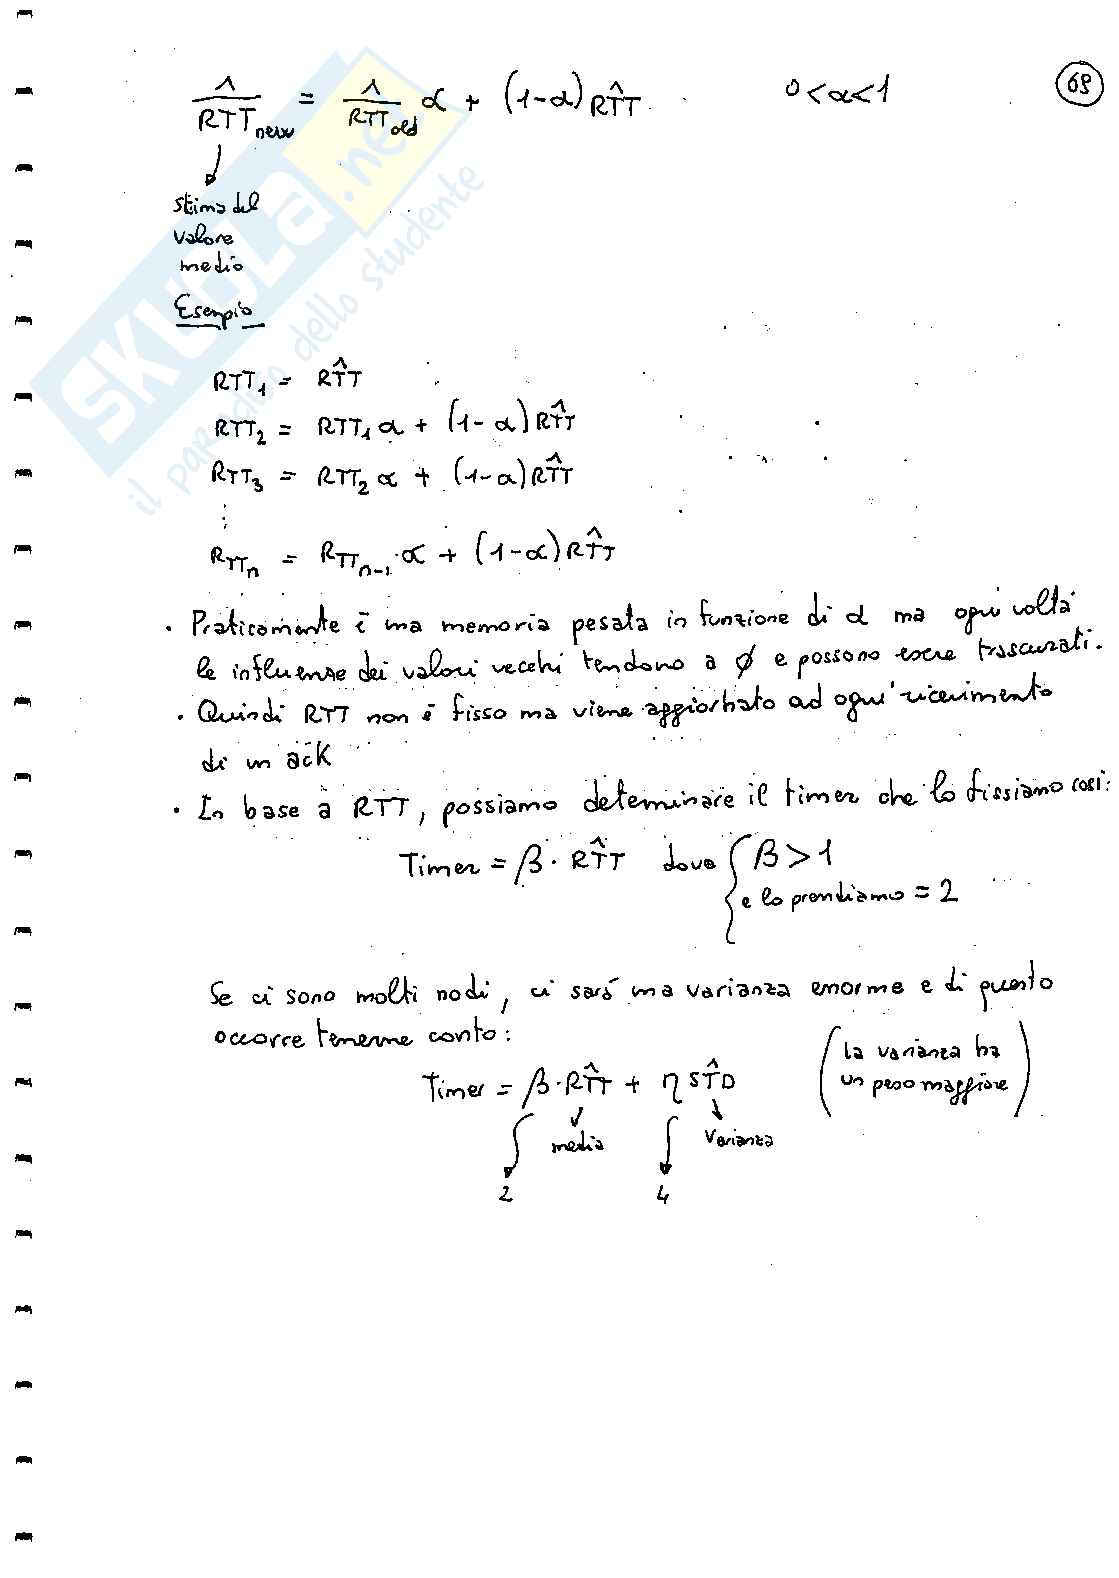 69
R̂TT̅_new = R̂TT̅_old α + (1-α) RT̂T 0<α<1
stima del
valore
medio
Esempio
RTT₁ = RT̂T
RTT₂ = RTT₁ α + (1-α) RT̂T
RTT₃ = RTT₂ α + (1-α) RT̂T
⋮
RTTₙ = RTTₙ₋₁ α + (1-α) RT̂T
• Praticamente è una memoria pesata in funzione di α ma ogni volta
le influenze dei valori vecchi tendono a ø e possono essere trascurati.
• Quindi RTT non è fisso ma viene aggiornato ad ogni ricevimento
di un ack
• In base a RTT, possiamo determinare il timer che lo fissiamo così:
Timer = β · RT̂T dove { β > 1
e lo prendiamo = 2
Se ci sono molti nodi, ci sarà una varianza enorme e di questo
occorre tenerne conto:
Timer = β · RT̂T + η ST̂D (La varianza ha
un peso maggiore)
media varianza
2 4
SKUOLA.net
il paradiso dello studente